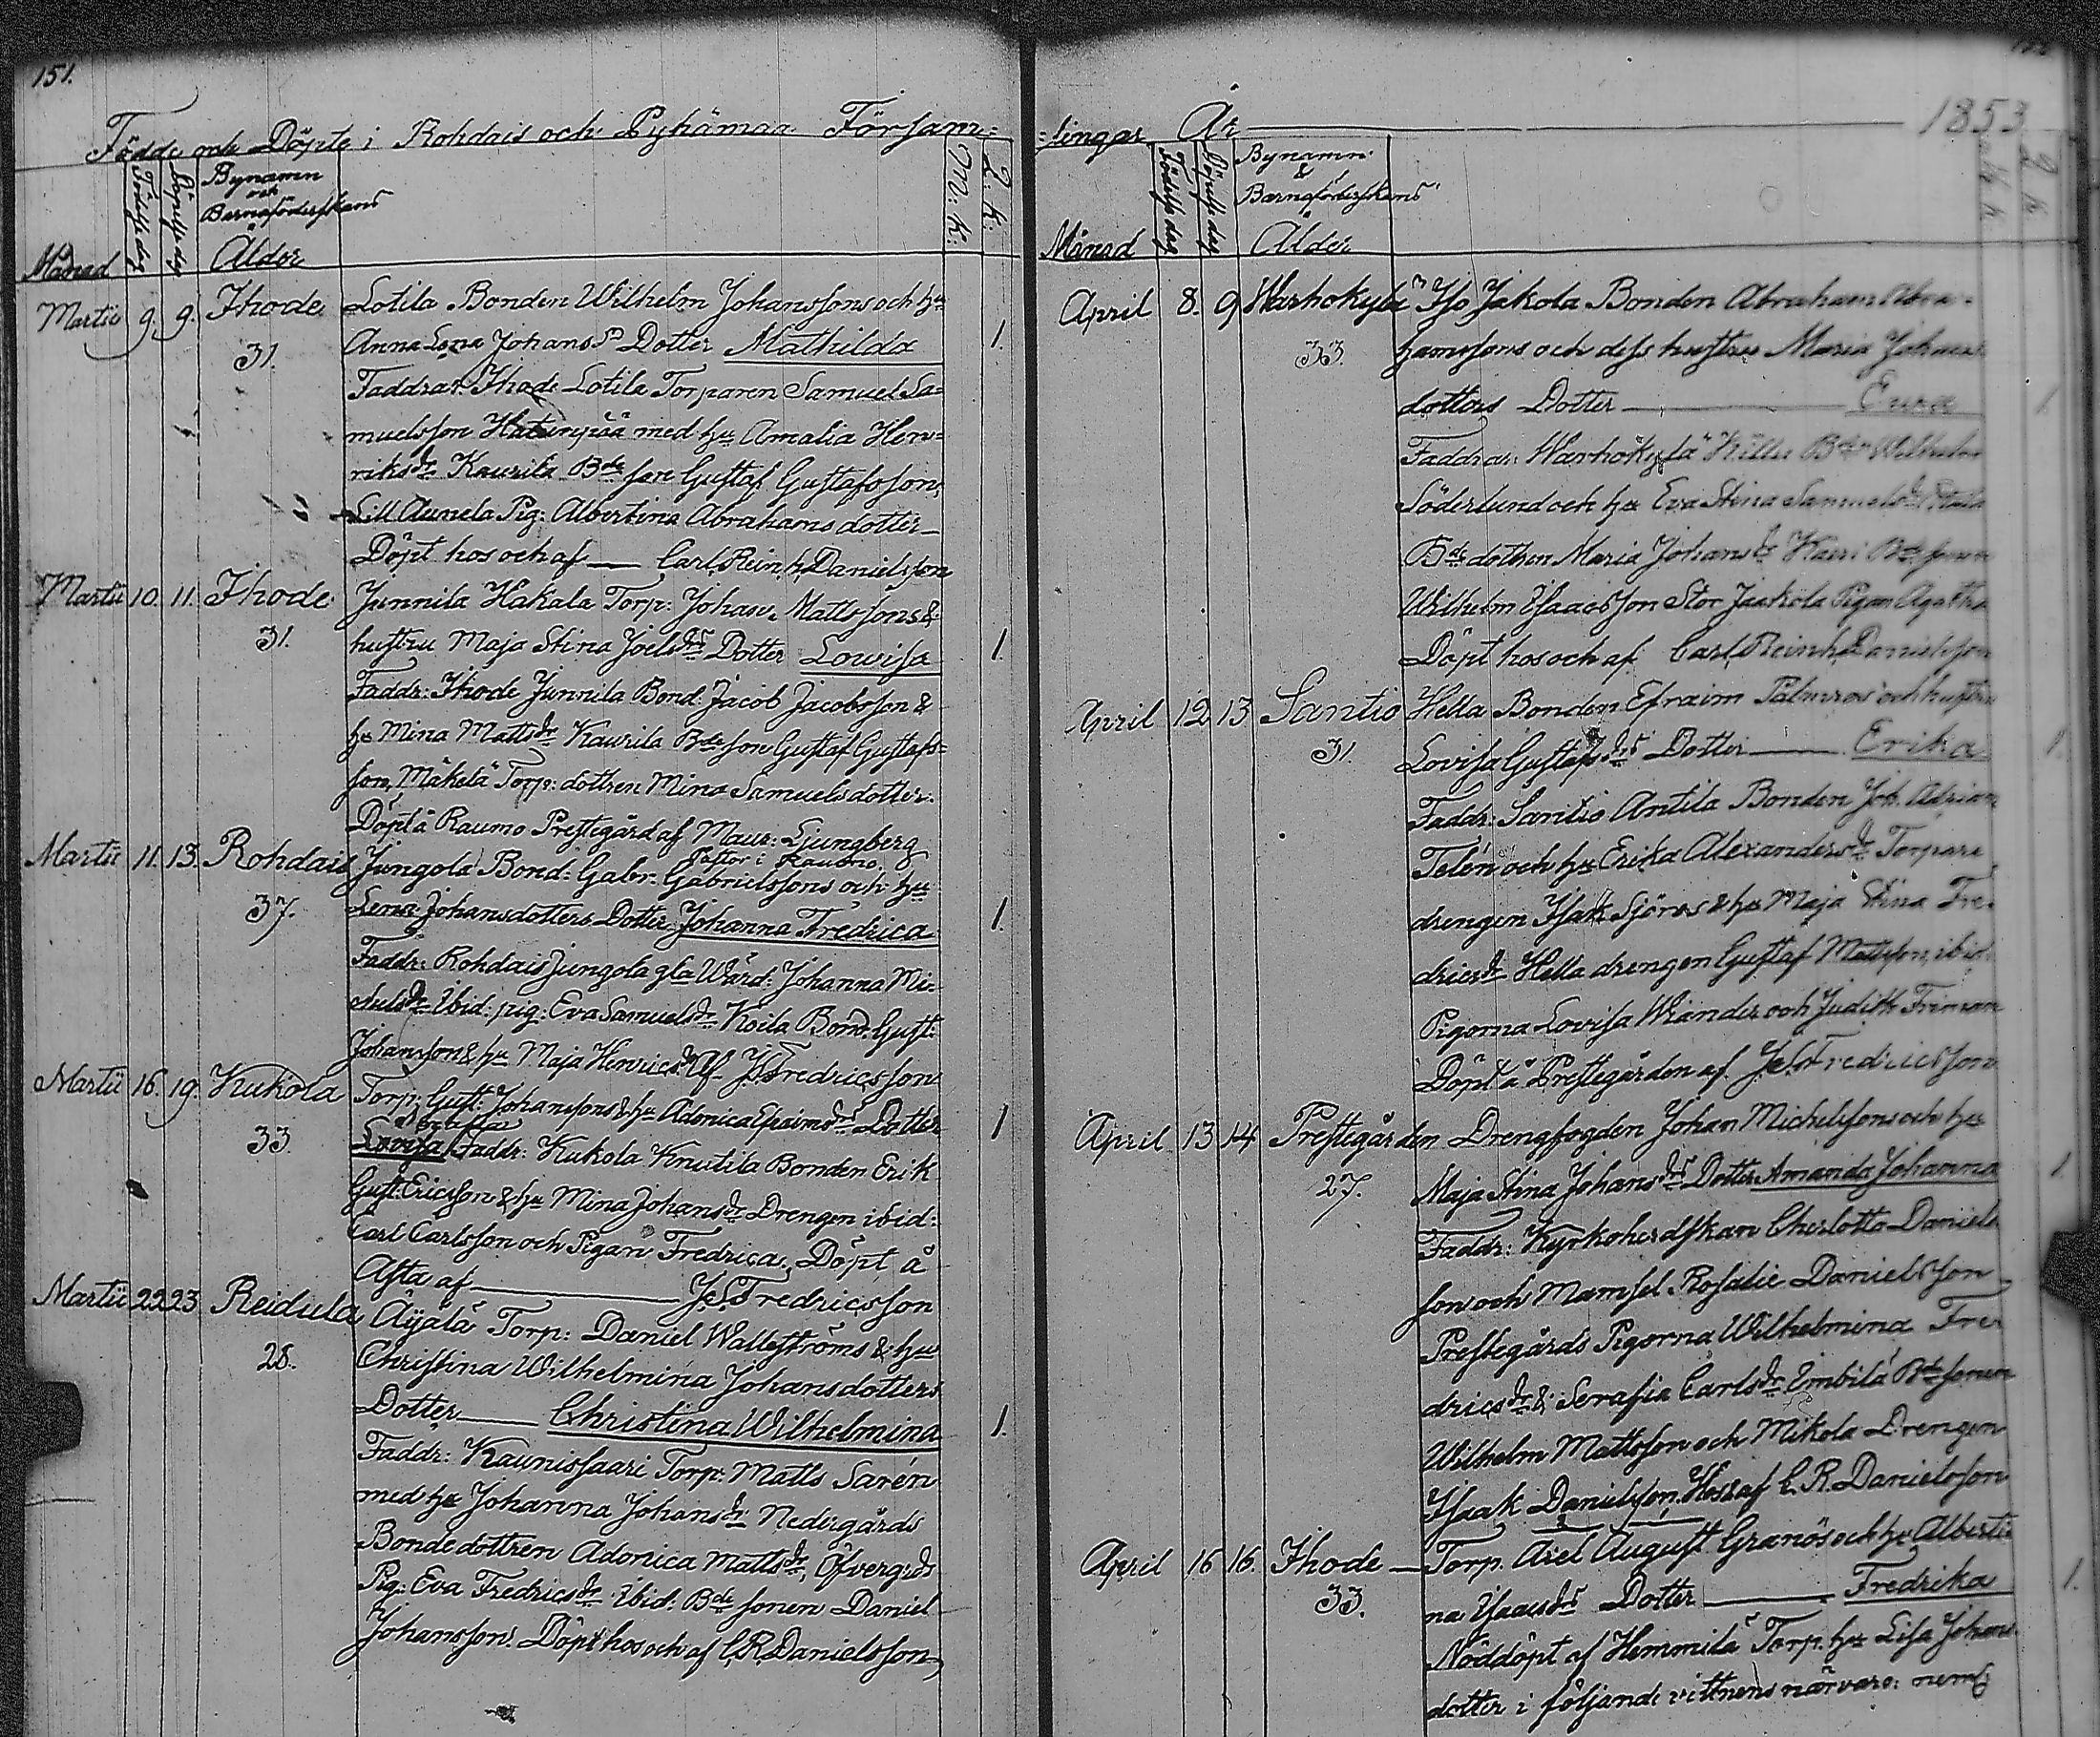 151.
Födde och Döpte i Rohdais och Pyhämaa Församl=
Månad
Födelse dag
Döpelse dag
Bynamn
och
Barnaföderskans
Ålder
M: K:
Q: K:
Martii 9. 9. Ihode Lotila Bonden Wilhelm Johanssons och hu
31. Anna Lena Johansdrs Dotter Mathilda 1.
Faddrar: Ihode Lotila Torparen Samuel Sa=
muelsson med hu Amalia Hen=
riksdr Kaurila Bde son Gustaf Gustafsson,
Lill Aunela Pig: Albertina Abrahamsdotter
Döpt hos och af — Carl Reinh. Danielsson
Martii 10. 11. Ihode Junnila Hakala Torp: Johan Mattssons &
31. hustru Maja Stina Joelsdrs Dotter Lowisa 1.
Faddr: Ihode Junnila Bond: Jacob Jacobsson &
hu Mina Mattsdr Kaurila Bde son Gustaf Gustafs=
son, Mäkelä Torp: dottren Mina Samuelsdotter.
Döpt å Raumo Prestegård af Maur: Ljungberg
Pastor i Raumo.
Martii 11. 13. Rohdais Jungola Bond: Gabr. Gabrielssons och hu
37. Lena Johansdotters Dotter Johanna Fredrica 1.
Faddr: Rohdais Jungola gla Wärd: Johanna Mi=
chelsdr ibid: pig: Eva Samuelsdr Koila Bond: Gust:
Johansson & hu Maja Henricsdr Af J. G. Fredricsson
Martii 16. 19. Kukola Torp: Gust: Johanssons & hu Adonica Efraimsdrs Dotter 1
33. Lovisa Faddr: Kukola Knutila Bonden Erik
Gust: Ericsson & hu Mina Johansdr Drengen ibid:
Carl Carlsson och Pigan Fredrica. Döpt å
af — J. G. Fredricsson
Martii 22 23 Reidula Äyälä Torp: Daniel Wallströms & hu
28. Christina Wilhelmina Johansdotters
Dotter — Christina Wilhelmina 1.
Faddr: Kaunissaari Torp: Matts Sarén
med hu Johanna Johansdr Nedergårds
Bonde dottren Adonica Mattsdr, Öfvergårds
Pig: Eva Fredricsdr ibid: Bde sonen Daniel
Johansson. Döpt hos och af C. R. Danielsson
=lingar År — 1853
Månad
Födelse dag
Döpelse dag
Bynamn
&
Barnaföderskans
Ålder
M. K
Q. K
April 8. 9 Warhokylä Iso Jakola Bonden Abraham Abra=
33. hamssons och dess hustru Maria Johans
dotters Dotter — Eva 1
Faddrar: Warhokylä Bden Wilhelm
Söderlund och hu Eva Stina Samuelsdr
Bde dottren Maria Johansdr Kauri Bde sonen
Wilhelm Isaacsson Stor Jaakola Pigan Agatha
Döpt hos och af Carl Reinh. Danielsson
April 12 13 Santio Hella Bonden Efraim Palmros och hustru
31. Lovisa Gustafsdrs Dotter — Erika 1.
Faddr: Santio Antila Bonden Joh. Adrian
Telén och hu Erika Alexandersdr Torpare
drengen Isak Sjöros & hu Maja Stina Fre=
dricsdr Hella drengen Gustaf Mattsson, ibid:
Pigorna Lovisa Wiander och Judith Friman
Döpt å Prestegården af J. G. Fredricsson
April 13 14 Prestegården Drengfogden Johan Michelssons och hu
27. Maja Stina Johansdrs Dotter Amanda Johanna 1.
Faddr: Kyrkoherdskan Charlotta Daniels
son och Mamsel Rosalie Danielsson
Prestegårds Pigorna Wilhelmina Fre
dricsdr & Serafia Carlsdr Embilä Bde sonen
Wilhelm Mattsson och Mikola Drengen
Isaak Danielsson. Hos & af C. R. Danielsson
April 15 16. Ihode — Torp. Axel August Granös och hu Alberti
33. na Isaacsdrs Dotter — Fredrika 1.
Nöddöpt af Hemmilä Torp. hu Lisa Johans
dotter i följande vittnens närvaro: neml